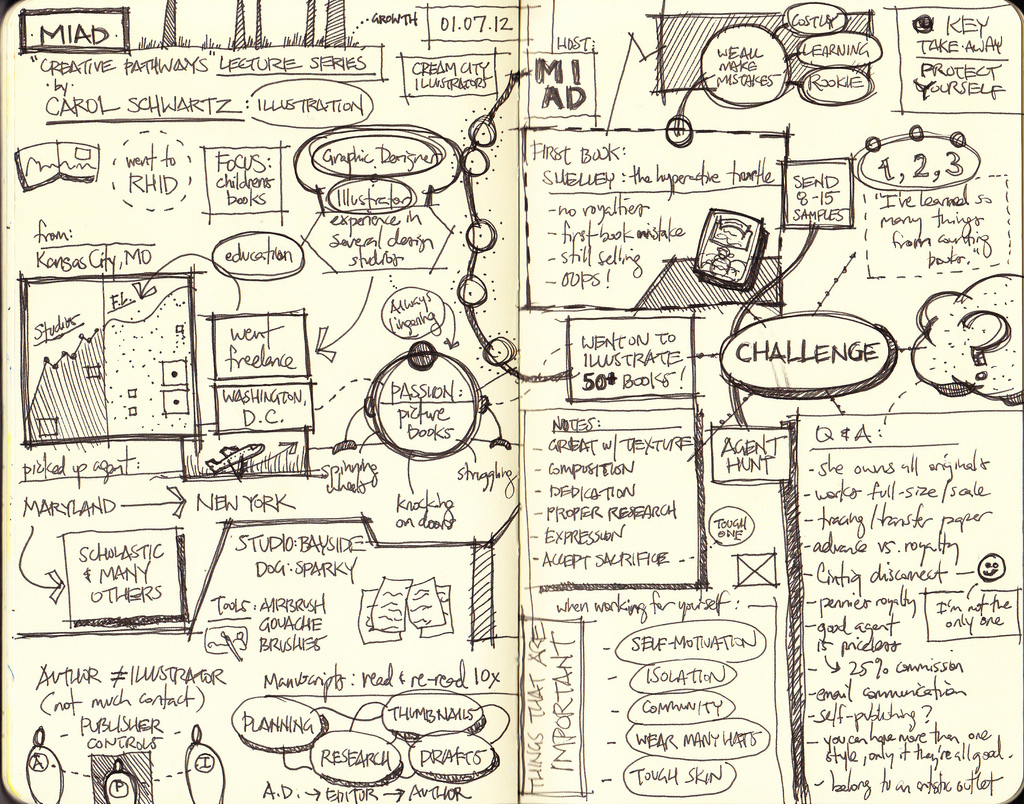 MIAD
GROWTH
01.07.12
"CREATIVE PATHWAYS" LECTURE SERIES
by:
CAROL SCHWARTZ: ILLUSTRATION
CREAM CITY
ILLUSTRATORS
went to
RHID
FOCUS:
childrens
books
Graphic Designer
Illustrator
experience in
several design
studios
from:
Kansas City, MO
education
Studios
F.L.
went
freelance
WASHINGTON,
D.C.
Always
lingering
PASSION:
picture
BOOKS
spinning
wheels
struggling
knocking
on doors
picked up agent:
MARYLAND → NEW YORK
SCHOLASTIC
& MANY
OTHERS
STUDIO: BAYSIDE
DOG: SPARKY
TOOLS: AIRBRUSH
GOUACHE
BRUSHES
AUTHOR ≠ ILLUSTRATOR
(not much contact)
PUBLISHER
CONTROLS
A
P
I
Manuscripts: read & re-read 10x
PLANNING
THUMBNAILS
RESEARCH
DRAFTS
A.D. → EDITOR → AUTHOR
HOST:
MI
AD
WE ALL
MAKE
MISTAKES
COSTLY
LEARNING
ROOKIE
KEY
TAKE-AWAY
PROTECT
YOURSELF
FIRST BOOK:
SHELLEY: the hyperactive turtle
- no royalties
- first-book mistake
- still selling
- OOPS!
SEND
8-15
SAMPLES
1, 2, 3
"I've learned so
many things
from counting
books."
WENT ON TO
ILLUSTRATE
50+ BOOKS!
CHALLENGE
?
NOTES:
- GREAT W/ TEXTURE
- COMPOSITION
- DEDICATION
- PROPER RESEARCH
- EXPRESSION
- ACCEPT SACRIFICE
AGENT
HUNT
TOUGH
ONE
when working for yourself:
THINGS THAT ARE
IMPORTANT
- SELF-MOTIVATION
- ISOLATION
- COMMUNITY
- WEAR MANY HATS
- TOUGH SKIN
Q & A:
- she owns all originals
- works full-size/scale
- tracing/transfer paper
- advance vs. royalty
- Cintiq disconnect
I'm not the
only one
- pennies royalty
- good agent
is priceless
↳ 25% commission
- email communication
- self-publishing?
- you can have more than one
style, only if they're all good.
- belong to an artistic outlet